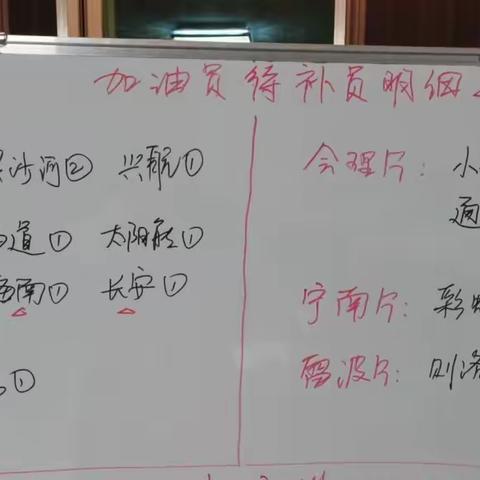 加油员待补员明细
沙河② 兴航①
道① 太阳能①
西南① 长安①
①
会理片: 小
通
宁南片: 彩
雷波片: 则